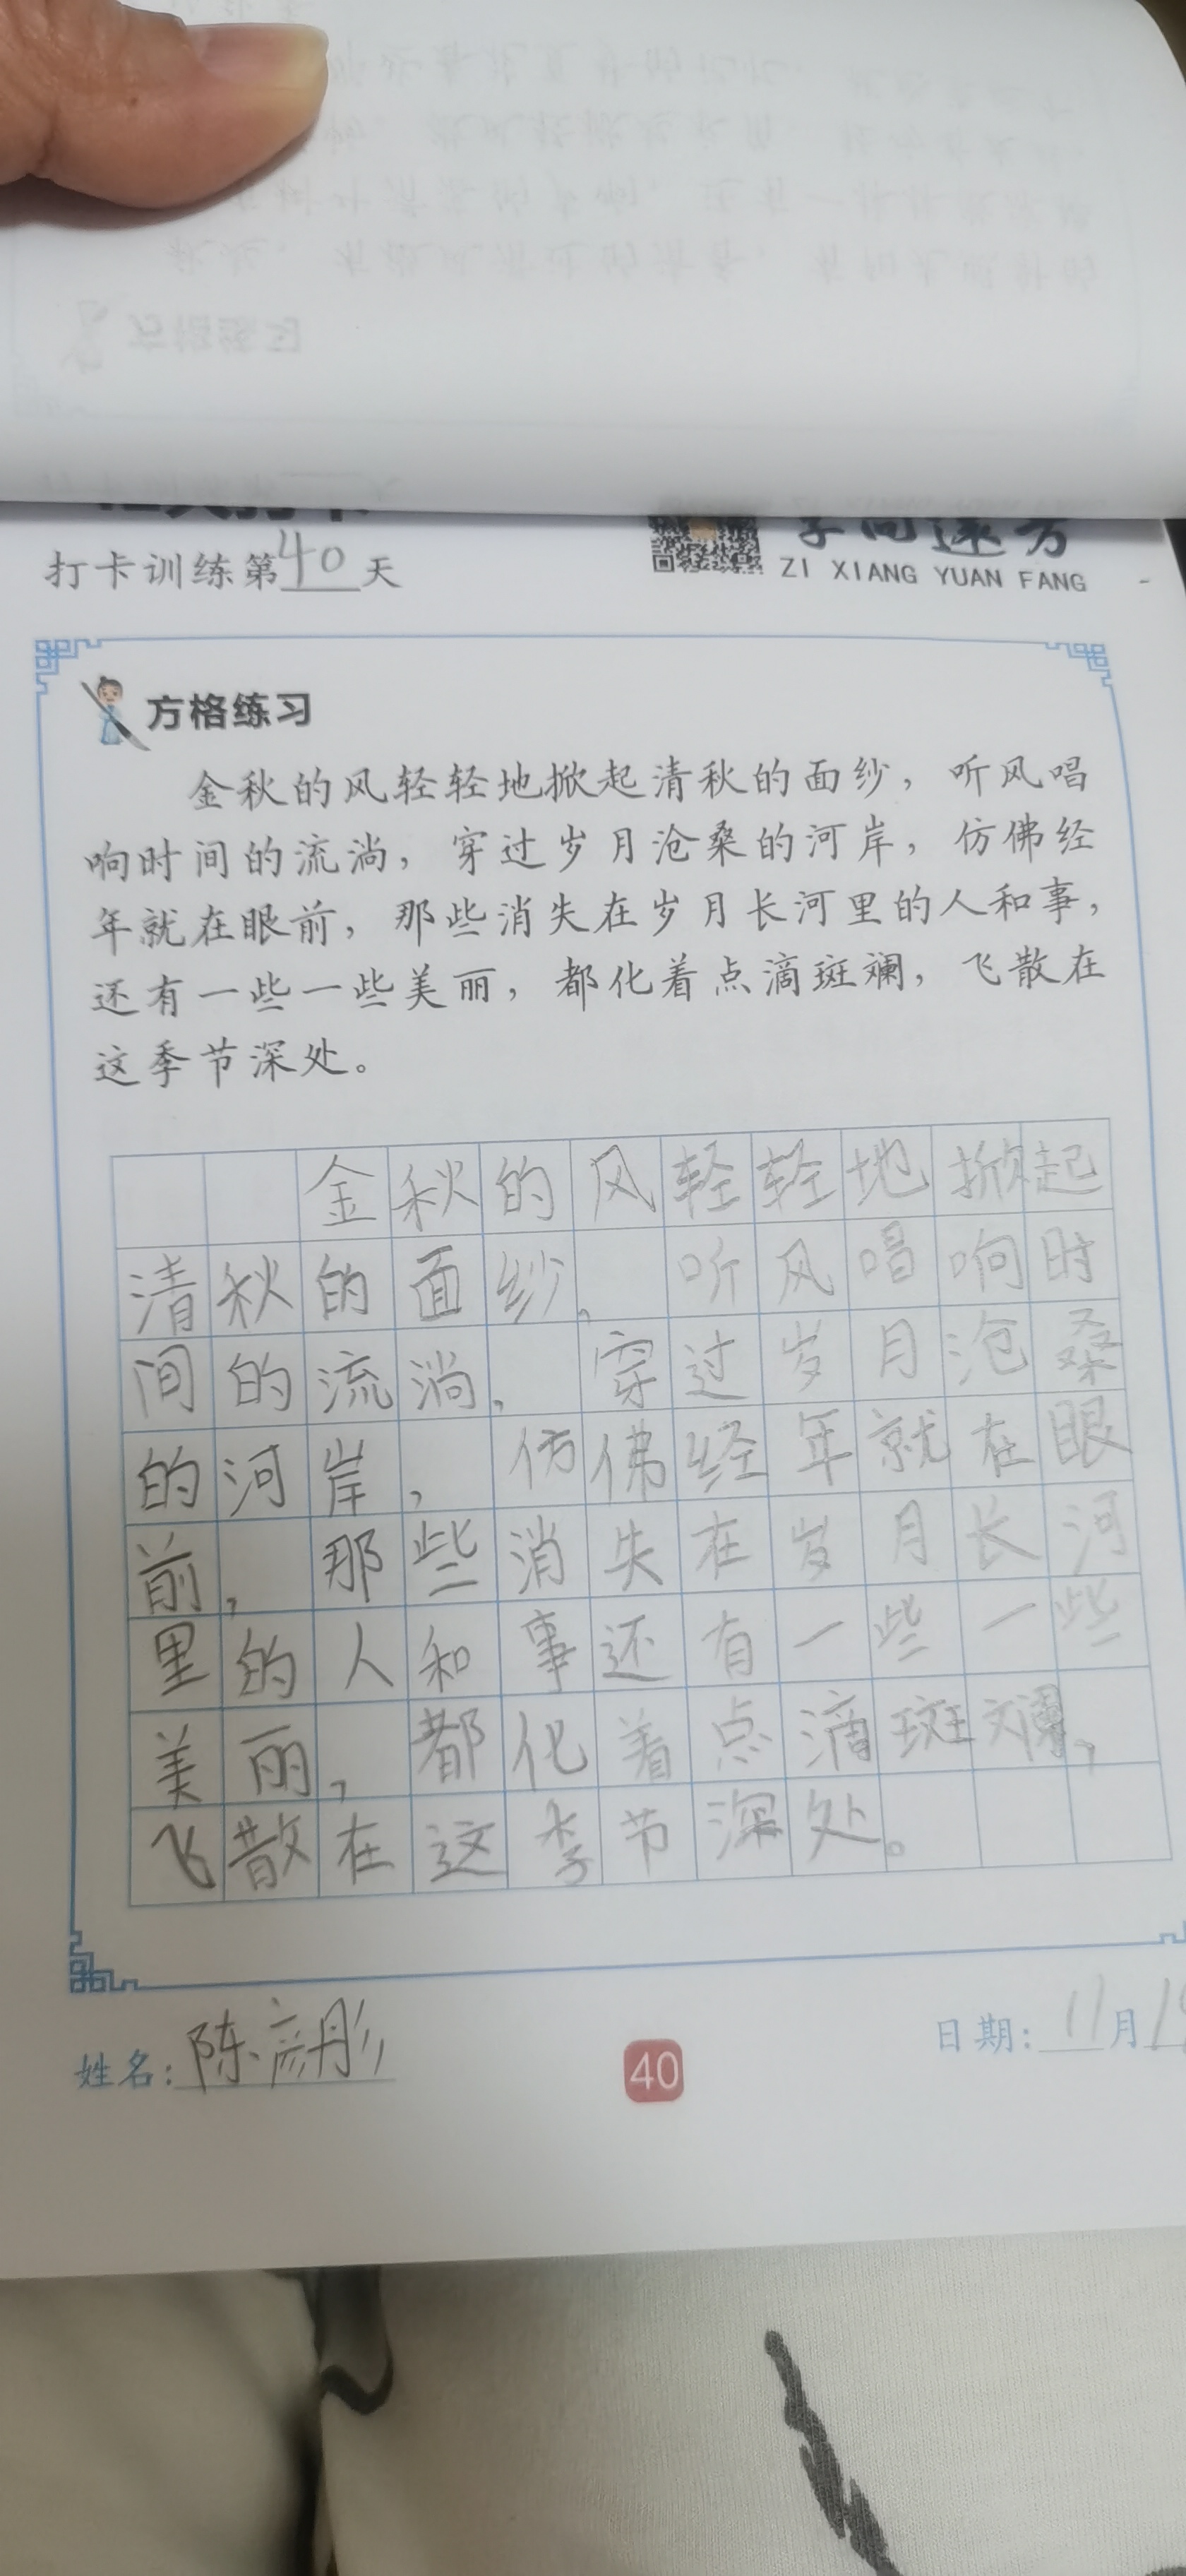 打卡训练第40天
字向远方
ZI XIANG YUAN FANG
方格练习
金秋的风轻轻地掀起清秋的面纱，听风唱
响时间的流淌，穿过岁月沧桑的河岸，仿佛经
年就在眼前，那些消失在岁月长河里的人和事，
还有一些一些美丽，都化着点滴斑斓，飞散在
这季节深处。
金秋的风轻轻地掀起
清秋的面纱，听风唱响时
间的流淌，穿过岁月沧桑
的河岸，仿佛经年就在眼
前，那些消失在岁月长河
里的人和事还有一些一些
美丽，都化着点滴斑斓，
飞散在这季节深处。
姓名：陈彦彤
40
日期：11月